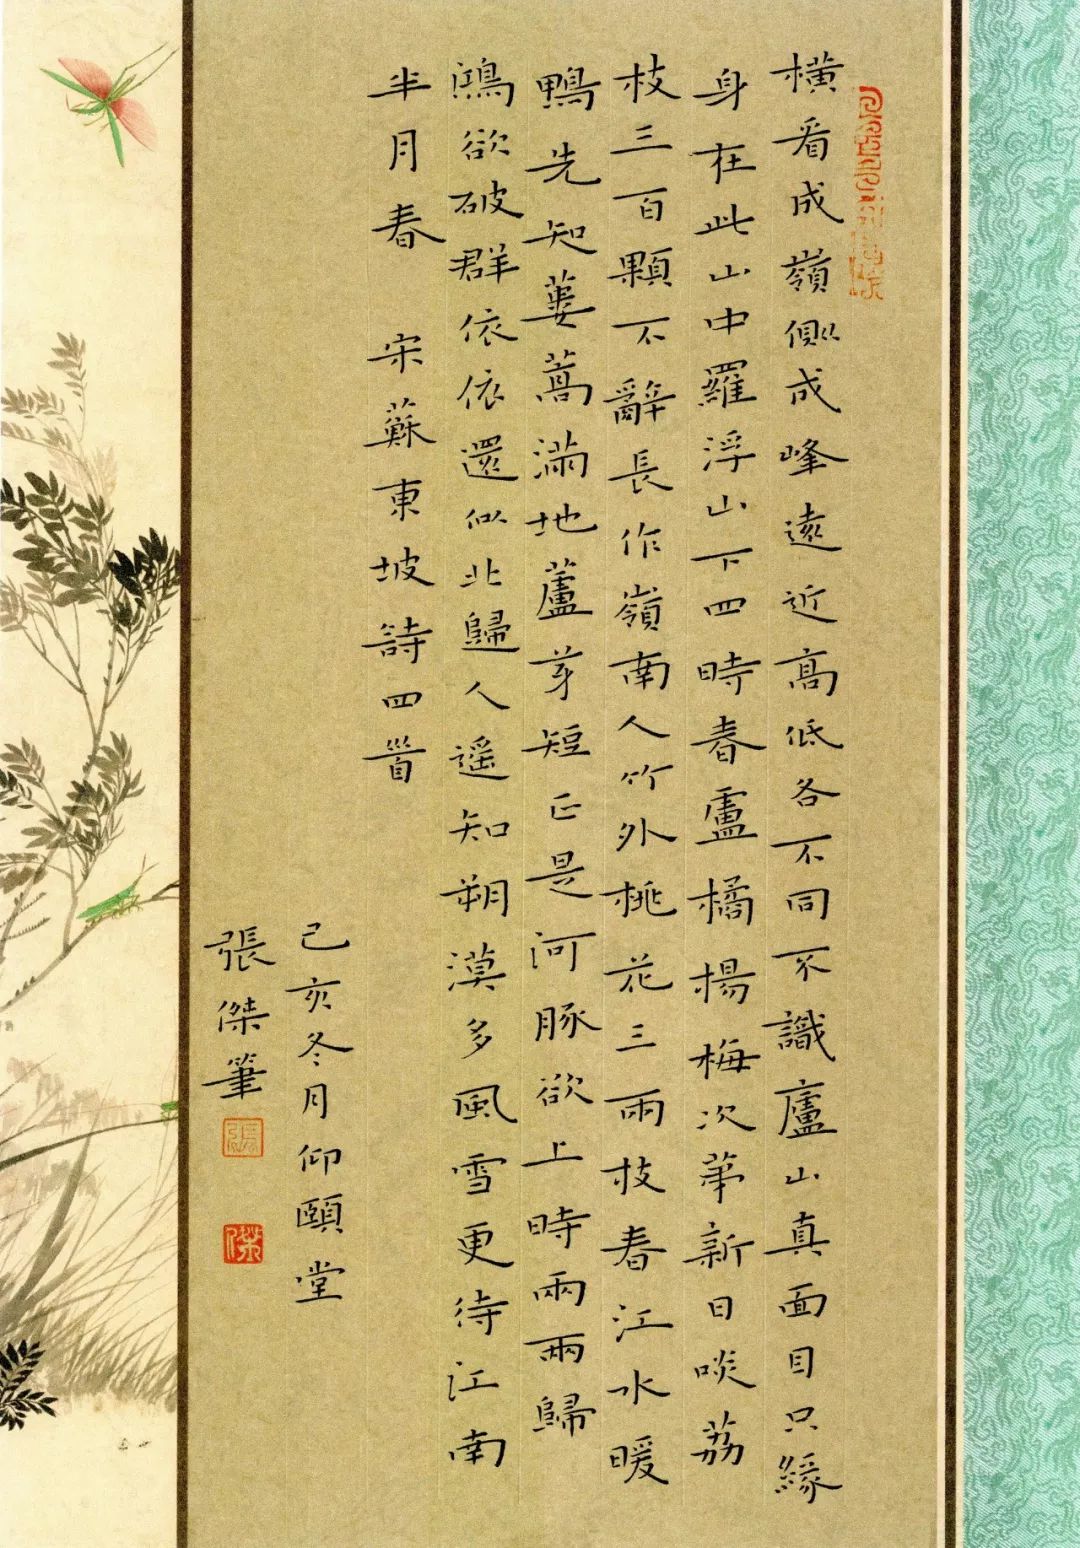 橫看成嶺側成峰遠近髙低各不同不識廬山真面目只緣
身在此山中羅浮山下四時春盧橘楊梅次苐新日啖荔
枝三百顆不辭長作嶺南人竹外桃花三兩枝春江水暖
鴨先知蔞蒿滿地蘆芽短正是河豚欲上時兩兩歸
鴻欲破群依依還似北歸人遥知朔漠多風雪更待江南
半月春 宋蘇東坡詩四首
己亥冬月仰頤堂
張傑筆
張
傑